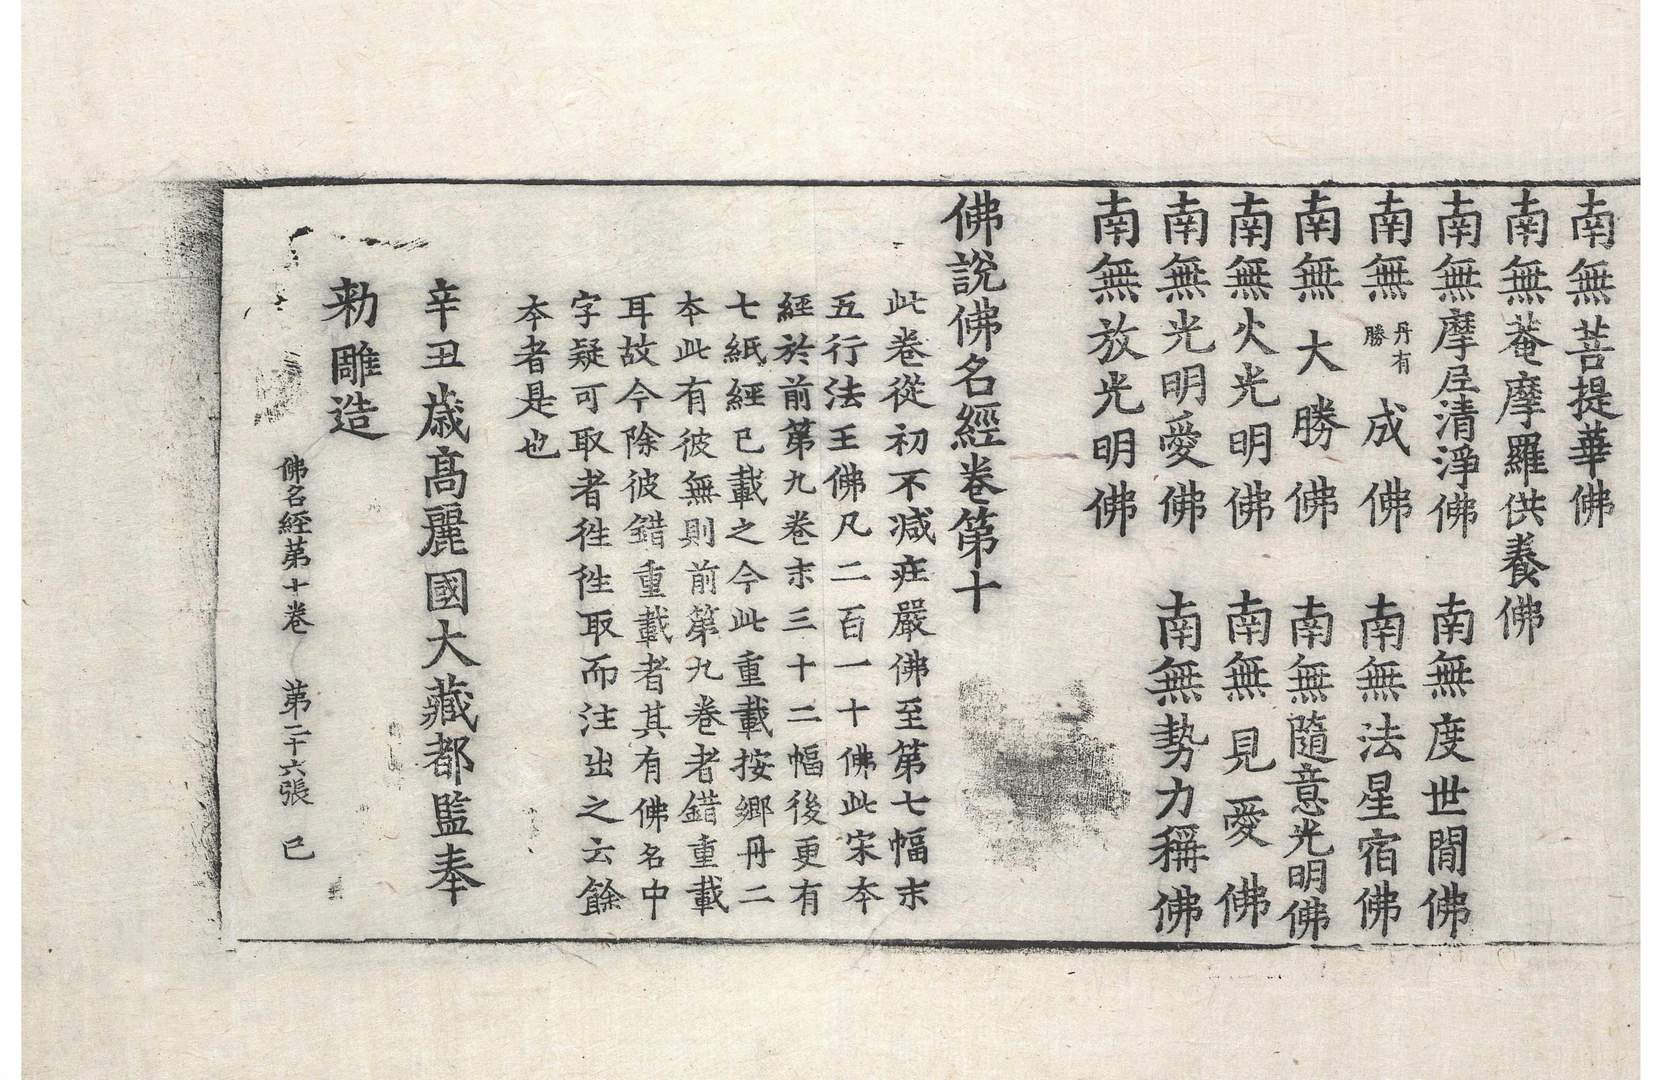 南無菩提華佛
南無菴摩羅供養佛
南無摩尼清淨佛　南無度世間佛
南無丹有勝成佛　南無法星宿佛
南無大勝佛　南無隨意光明佛
南無火光明佛　南無見愛佛
南無光明愛佛　南無勢力稱佛
南無放光明佛
佛說佛名經卷第十
此卷從初不減疘嚴佛至第七幅末
五行法王佛凡二百一十佛此宋本
經於前第九卷末三十二幅後更有
七紙經已載之今此重載按鄉丹二
本此有彼無則前第九卷者錯重載
耳故今除彼錯重載者其有佛名中
字疑可取者徃徃取而注出之云餘
本者是也
辛丑歲高麗國大藏都監奉
勑雕造
佛名經第十卷　第二十六張　已